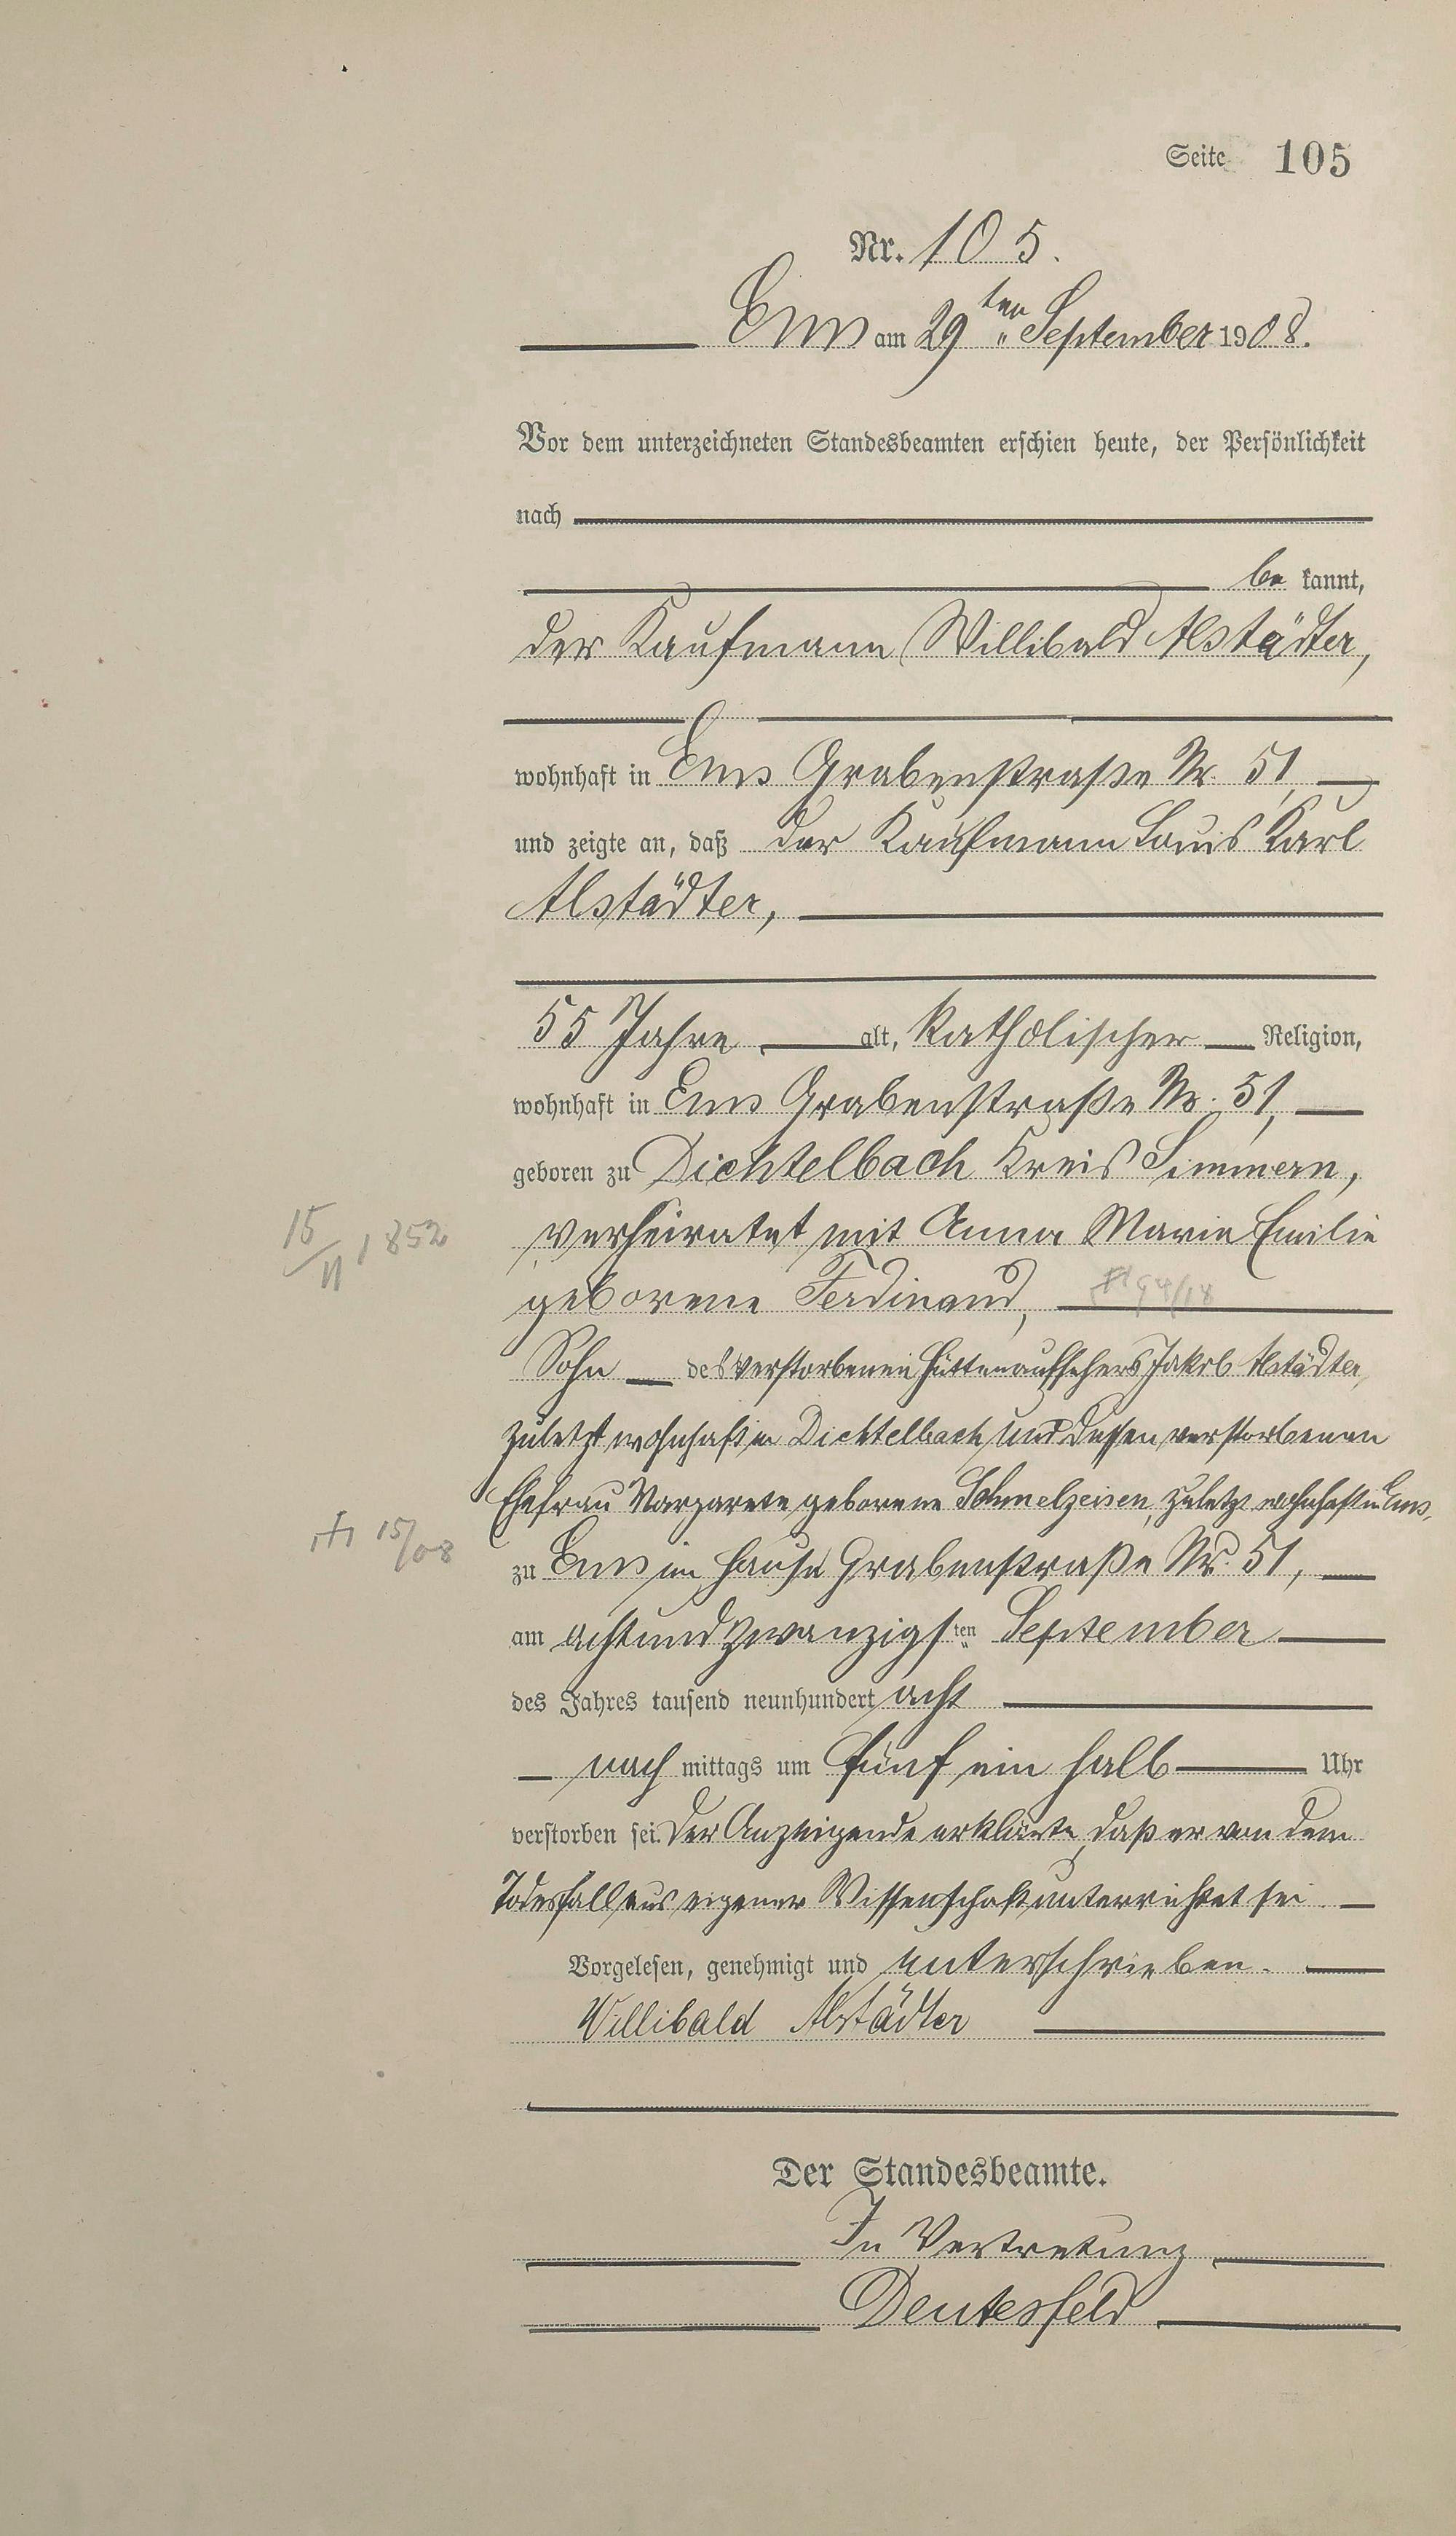 Seite 105
Nr. 105.
Ems am 29ten September 1908.
Vor dem unterzeichneten Standesbeamten erschien heute, der Persönlichkeit
nach
be kannt,
der Kaufmann Willibald Alstädter,
wohnhaft in Ems Grabenstraße Nr. 51
und zeigte an, daß der Kaufmann Louis Karl
Alstädter,
55 Jahre alt, katholischer Religion,
wohnhaft in Ems Grabenstraße Nr. 51,
geboren zu Dichtelbach Kreis Simmern,
15/11 1852
verheiratet mit Anna Marie Emilie
geborene Ferdinand, 94/18
Sohn des verstorbenen Hüttenaufsehers Jakob Alstädter,
zuletzt wohnhaft in Dichtelbach und dessen verstorbenen
Ehefrau Margarete geborene Schmelzeisen, zuletzt wohnhaft in Ems,
15/08
zu Ems im Hause Grabenstraße Nr. 51,
am achtundzwanzigsten September
des Jahres tausend neunhundert acht
nach mittags um fünf ein halb Uhr
verstorben sei. Der Anzeigende erklärte, daß er von dem
Todesfall aus eigener Wissenschaft unterrichtet sei.
Vorgelesen, genehmigt und unterschrieben.
Willibald Alstädter
Der Standesbeamte.
In Vertretung
Deutesfeld